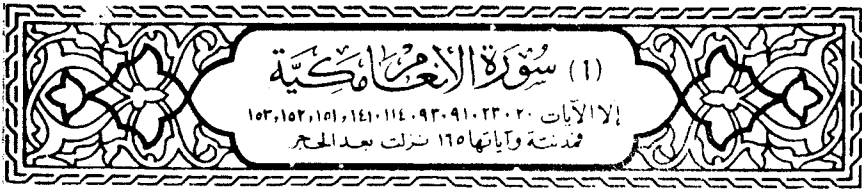 (١) سُورَة الأنعَام مَكيَّة
إلا الآيات ٢٠، ٢٣، ٩١، ٩٣، ١١٤، ١٤١، ١٥١، ١٥٢، ١٥٣
فمدنية وآياتها ١٦٥ نزلت بعد الحجر